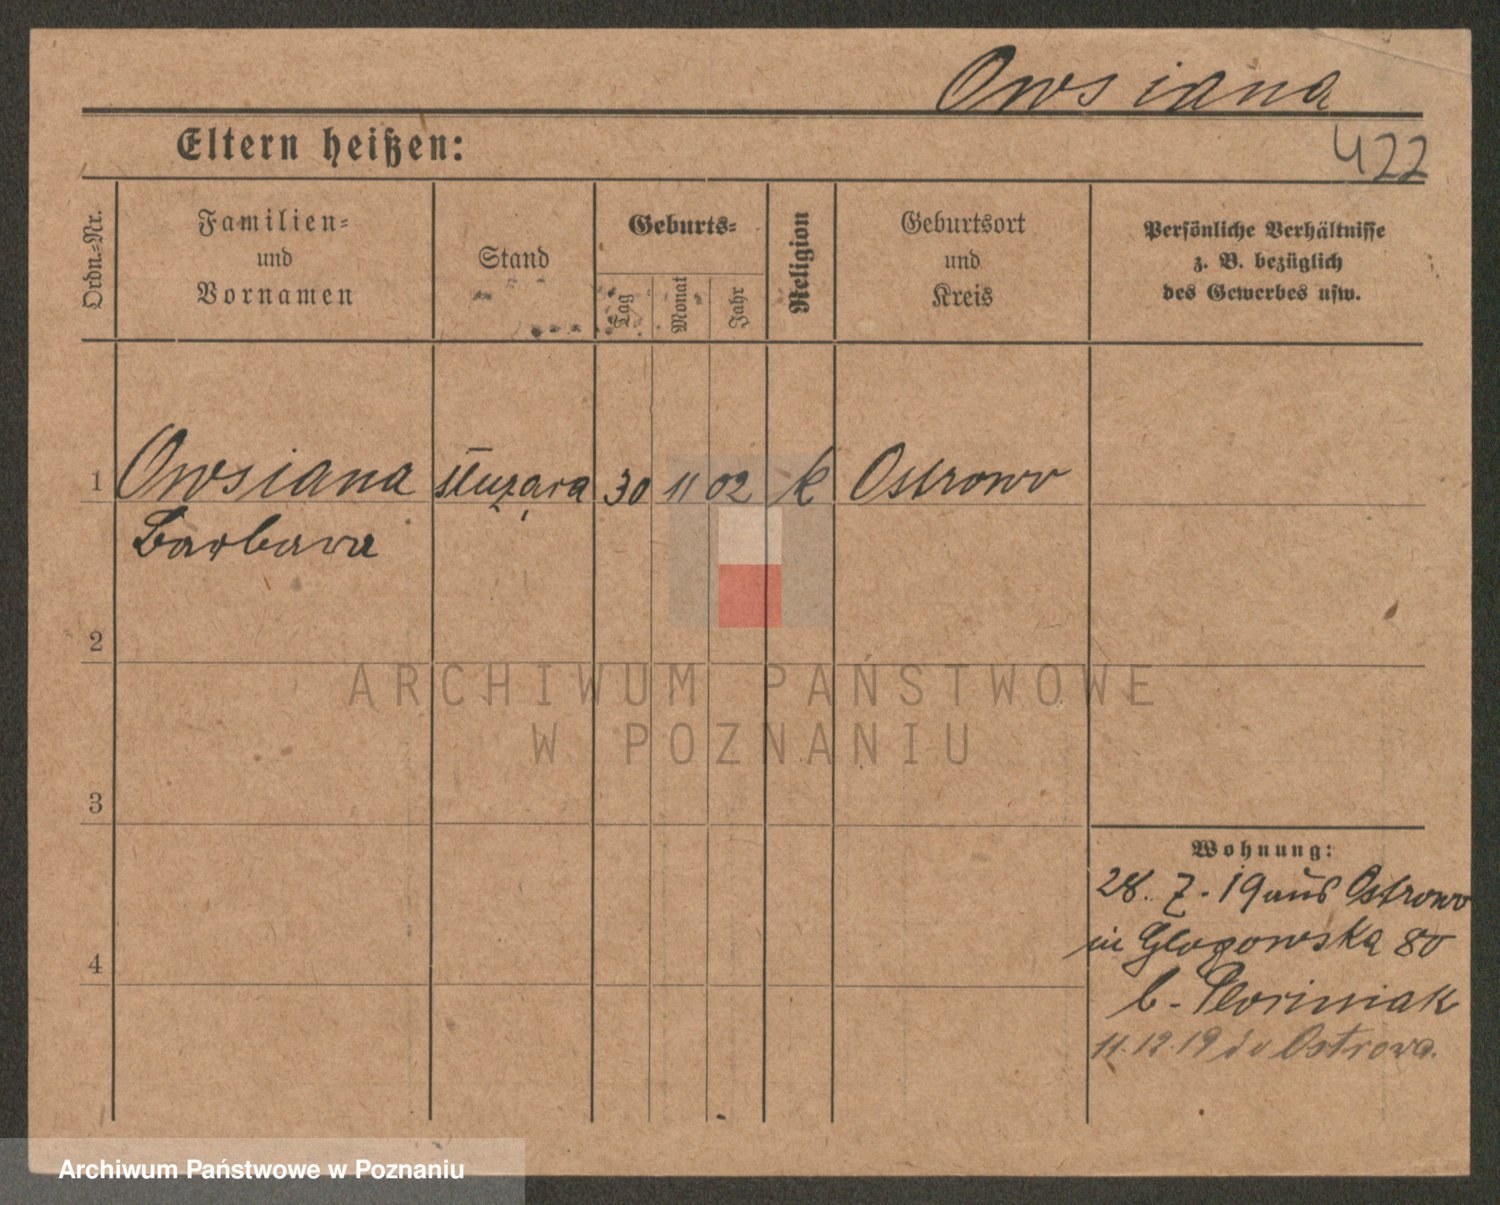 Owsiana
Eltern heißen:
422
Ordn.-Nr.
Familien-
und
Vornamen
Stand
Geburts-
Tag
Monat
Jahr
Religion
Geburtsort
und
Kreis
Persönliche Verhältnisse
z. B. bezüglich
des Gewerbes usw.
1 Owsiana służąca 30 11 02 k Ostrowo
Barbara
2
ARCHIWUM PAŃSTWOWE
W POZNANIU
3
Wohnung:
28. 7. 19 aus Ostrowo
in Glogowska 80
4
b. Floriniak
11.12.19 do Ostrowa.
Archiwum Państwowe w Poznaniu